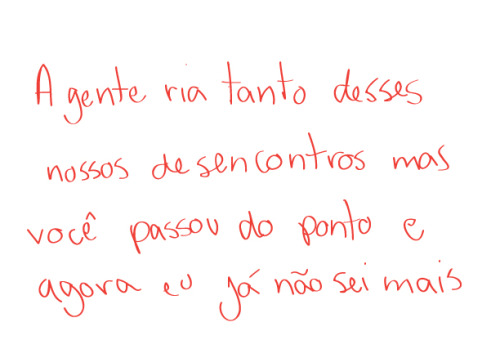 A gente ria tanto desses
nossos desencontros mas
você passou do ponto e
agora eu já não sei mais